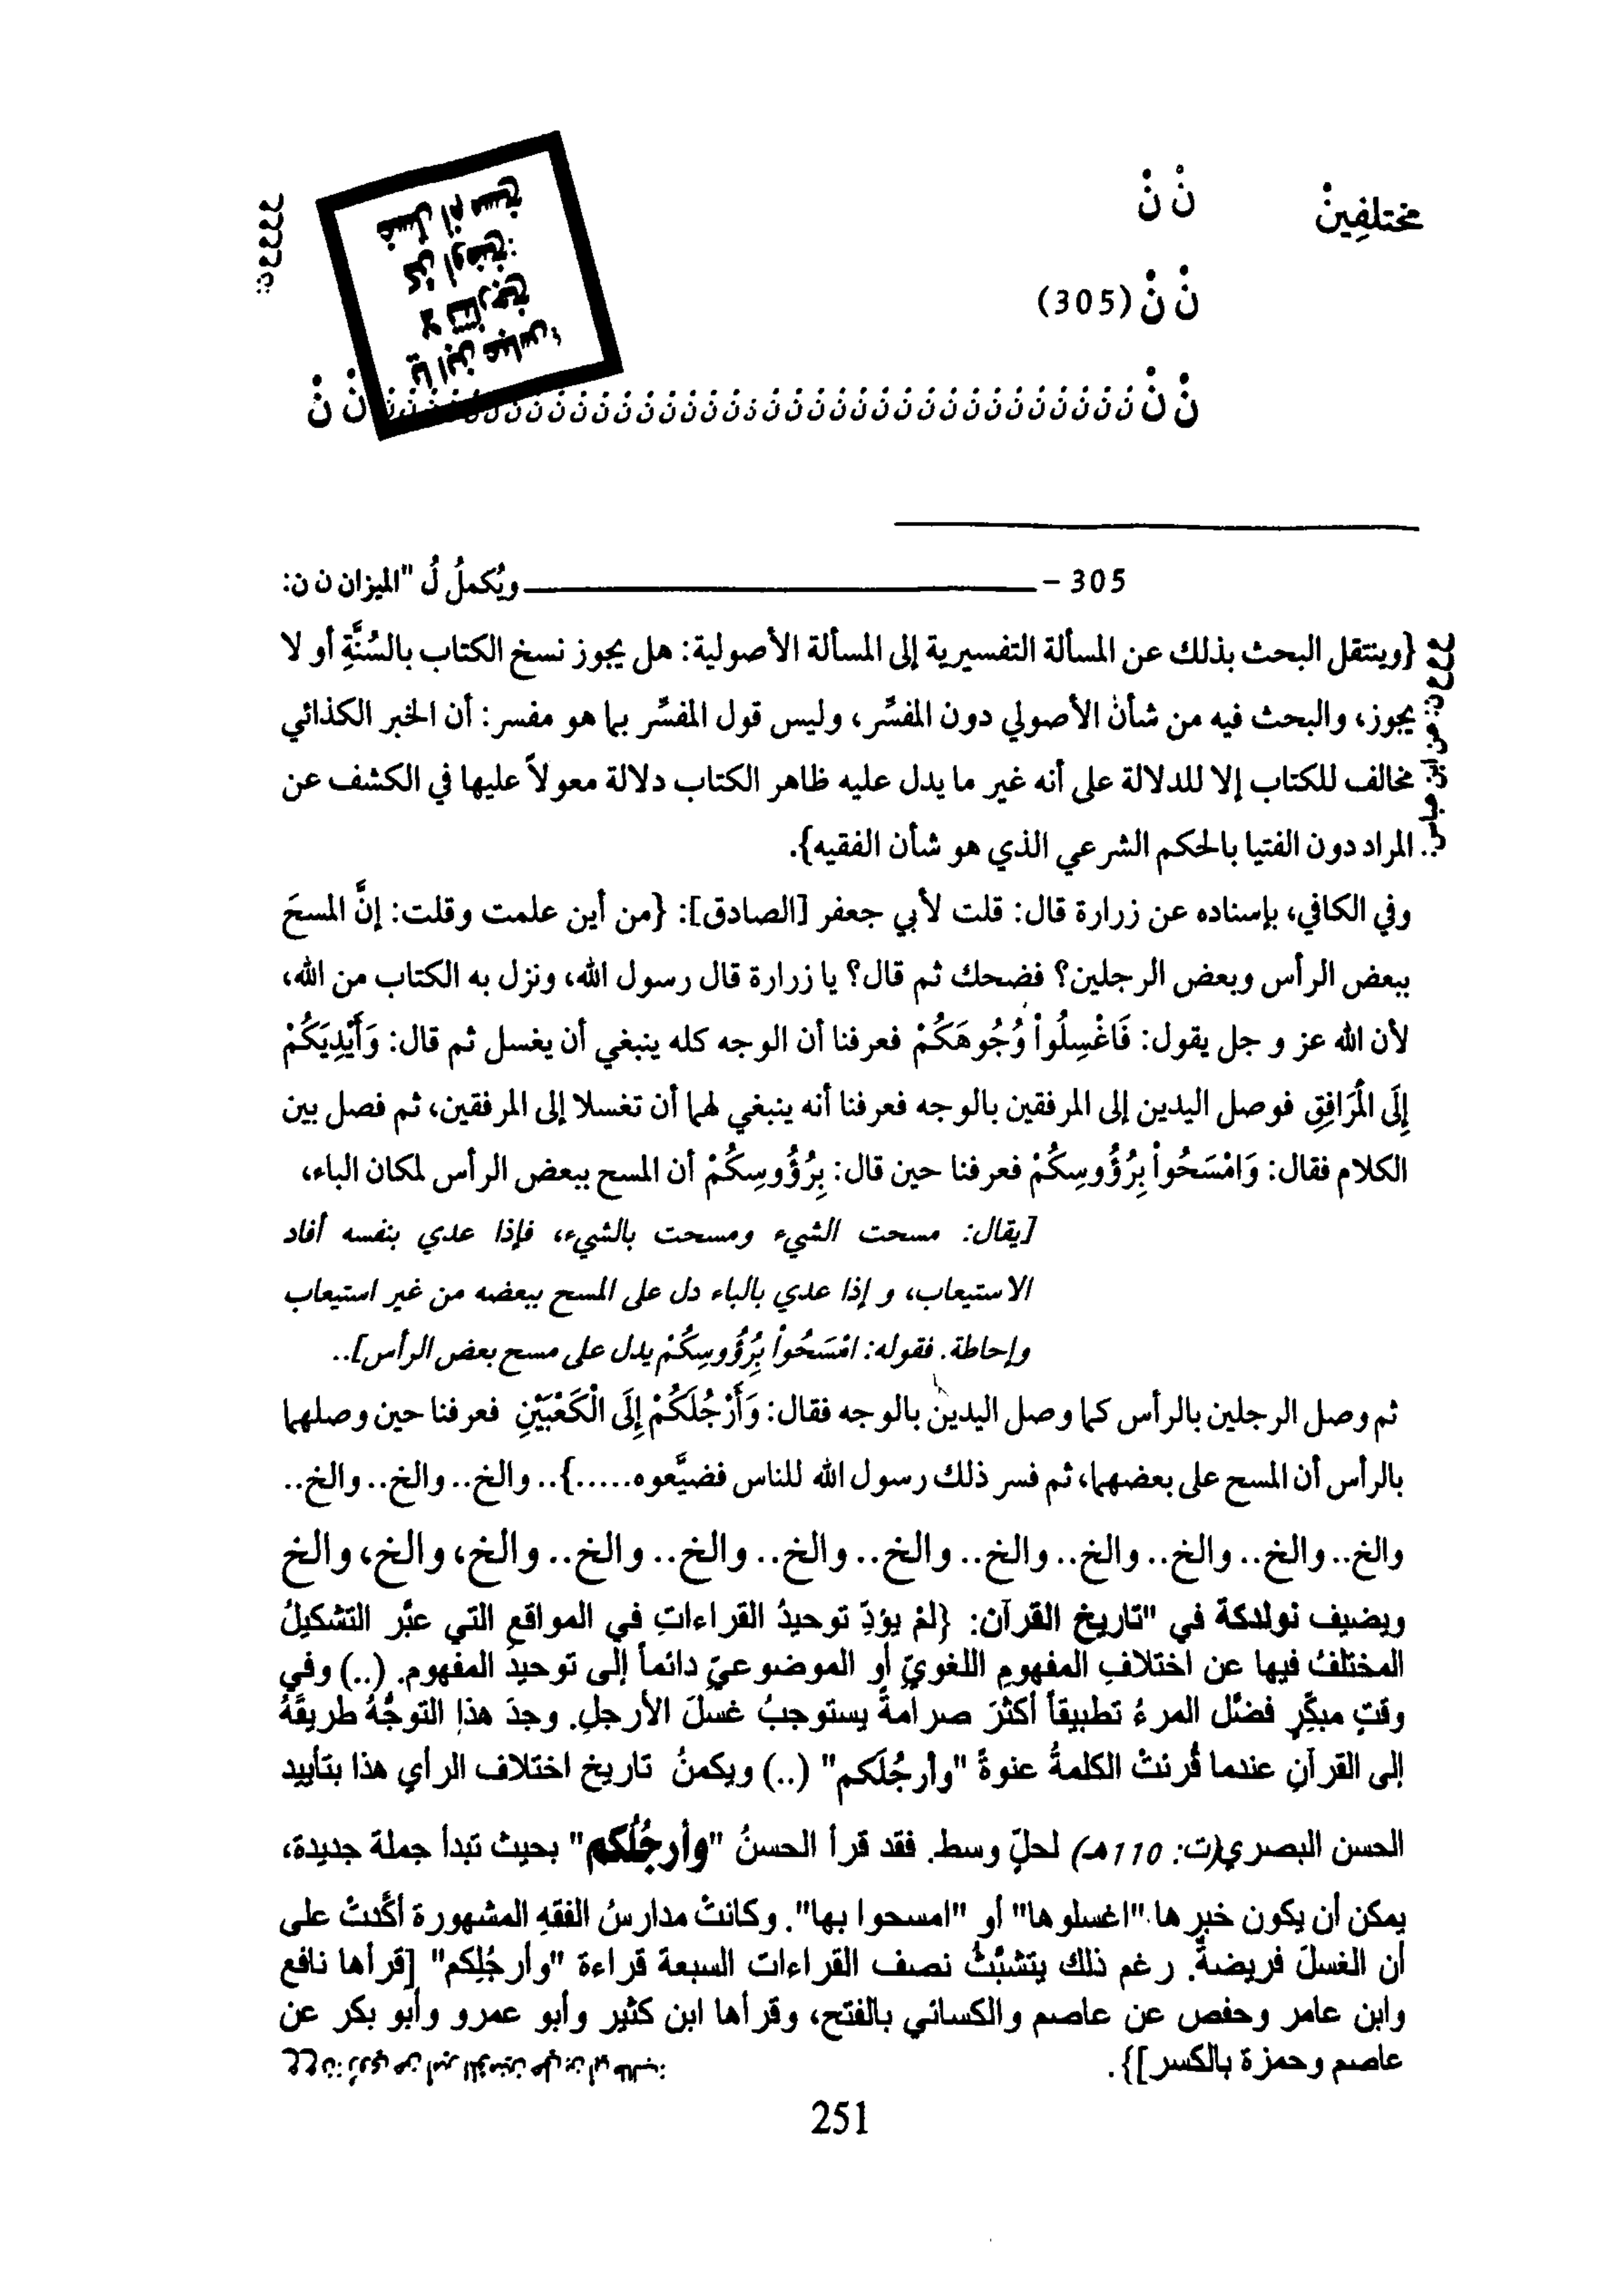 مختلفِينْ
نْ نْ
نْ نْ (305)
غسل أم مسح
كنْ أوضح:
لا تتأرجح
يا ابن عباس؟
305 - ويُكملُ لُ "الميزان ن ن:
{وينتقل البحث بذلك عن المسألة التفسيرية إلى المسألة الأصولية: هل يجوز نسخ الكتاب بالسُنَّةِ أو لا
يجوز، والبحث فيه من شأن الأصولي دون المفسِّر، وليس قول المفسِّر بما هو مفسر: أن الخبر الكذائي
مخالف للكتاب إلا للدلالة على أنه غير ما يدل عليه ظاهر الكتاب دلالة معولاً عليها في الكشف عن
المراد دون الفتيا بالحكم الشرعي الذي هو شأن الفقيه}.
وفي الكافي، بإسناده عن زرارة قال: قلت لأبي جعفر [الصادق]: {من أين علمت وقلت: إنَّ المسحَ
ببعض الرأس وبعض الرجلين؟ فضحك ثم قال؟ يا زرارة قال رسول الله، ونزل به الكتاب من الله،
لأن الله عز و جل يقول: فَاغْسِلُواْ وُجُوهَكُمْ فعرفنا أن الوجه كله ينبغي أن يغسل ثم قال: وَأَيْدِيَكُمْ
إِلَى المَْرَافِقِ فوصل اليدين إلى المرفقين بالوجه فعرفنا أنه ينبغي لهما أن تغسلا إلى المرفقين، ثم فصل بين
الكلام فقال: وَامْسَحُواْ بِرُؤُوسِكُمْ فعرفنا حين قال: بِرُؤُوسِكُمْ أن المسح ببعض الرأس لمكان الباء،
[يقال: مسحت الشيء ومسحت بالشيء، فإذا عدي بنفسه أفاد
الاستيعاب، و إذا عدي بالباء دل على المسح ببعضه من غير استيعاب
وإحاطة. فقوله: امْسَحُواْ بِرُؤُوسِكُمْ يدل على مسح بعض الرأس]..
ثم وصل الرجلين بالرأس كما وصل اليدين بالوجه فقال: وَأَرْجُلَكُمْ إِلَى الْكَعْبَيْنِ فعرفنا حين وصلهما
بالرأس أن المسح على بعضهما، ثم فسر ذلك رسول الله للناس فضيَّعوه.....}.. والخ.. والخ.. والخ..
والخ.. والخ.. والخ.. والخ.. والخ.. والخ.. والخ.. والخ.. والخ، والخ، والخ
ويضيف نولدكة في "تاريخ القرآن: {لمْ يؤدِّ توحيدُ القراءاتِ في المواقعِ التي عبَّر التشكيلُ
المختلفُ فيها عن اختلافِ المفهومِ اللغويِّ أو الموضوعيِّ دائماً إلى توحيدِ المفهوم. (..) وفي
وقتٍ مبكِّرٍ فضَّل المرءُ تطبيقاً أكثرَ صرامةً يستوجبُ غسلَ الأرجلِ. وجدَ هذا التوجُّهُ طريقَهُ
إلى القرآنِ عندما قُرئتْ الكلمةُ عنوةً "وأرجُلَكم" (..) ويكمنُ تاريخ اختلاف الرأي هذا بتأييد
الحسن البصري(ت: 110هـ) لحلٍّ وسط. فقد قرأ الحسنُ "وأرجُلُكم" بحيث تبدأ جملة جديدة،
يمكن أن يكون خبرها "اغسلوها" أو "امسحوا بها". وكانتْ مدارسُ الفقهِ المشهورة أكَّدتْ على
أن الغسلَ فريضةٌ. رغم ذلك يتشبَّثُ نصف القراءات السبعة قراءة "وأرجُلِكم" [قرأها نافع
وابن عامر وحفص عن عاصم والكسائي بالفتح، وقرأها ابن كثير وأبو عمرو وأبو بكر عن
عاصم وحمزة بالكسر]}.
251